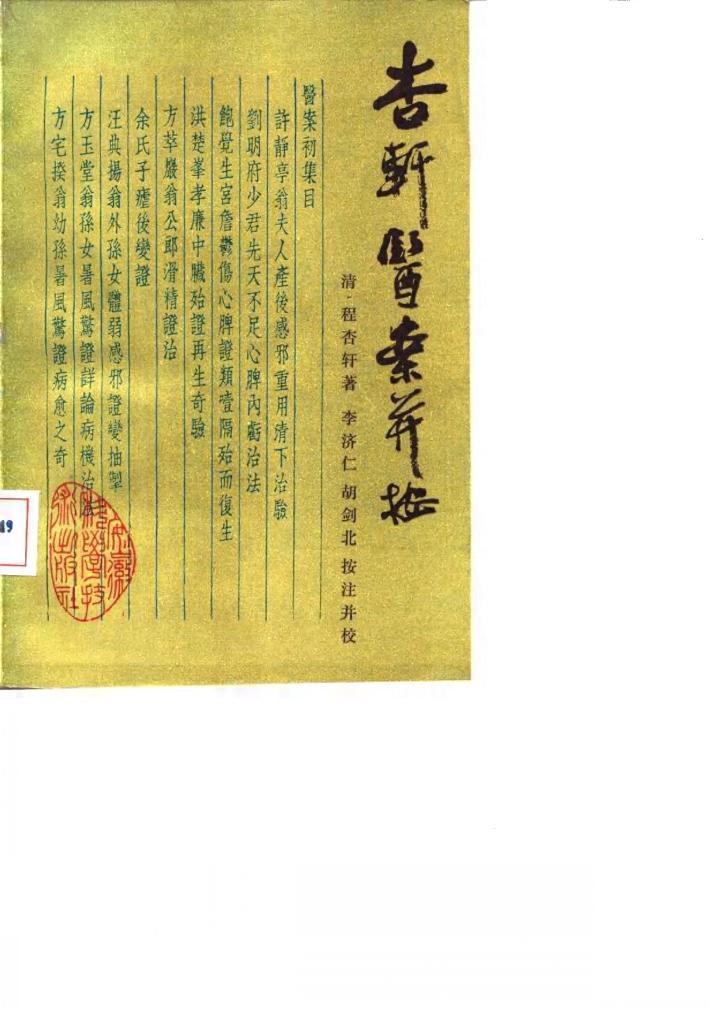 杏軒醫案并按
清·程杏轩著 李济仁 胡剑北 按注并校
醫案初集目
許靜亭翁夫人產後感邪重用清下治驗
劉明府少君先天不足心脾內虧治法
鮑覺生宮詹鬱傷心脾證類噎隔殆而復生
洪楚峯孝廉中臟殆證再生奇驗
方萃巖翁公郎滑精證治
余氏子瘧後變證
汪典揚翁外孫女體弱感邪證變抽掣
方玉堂翁孫女暑風驚證詳論病機治法
方宅揆翁幼孫暑風驚證病愈之奇
安徽
科學技
術出版社
49